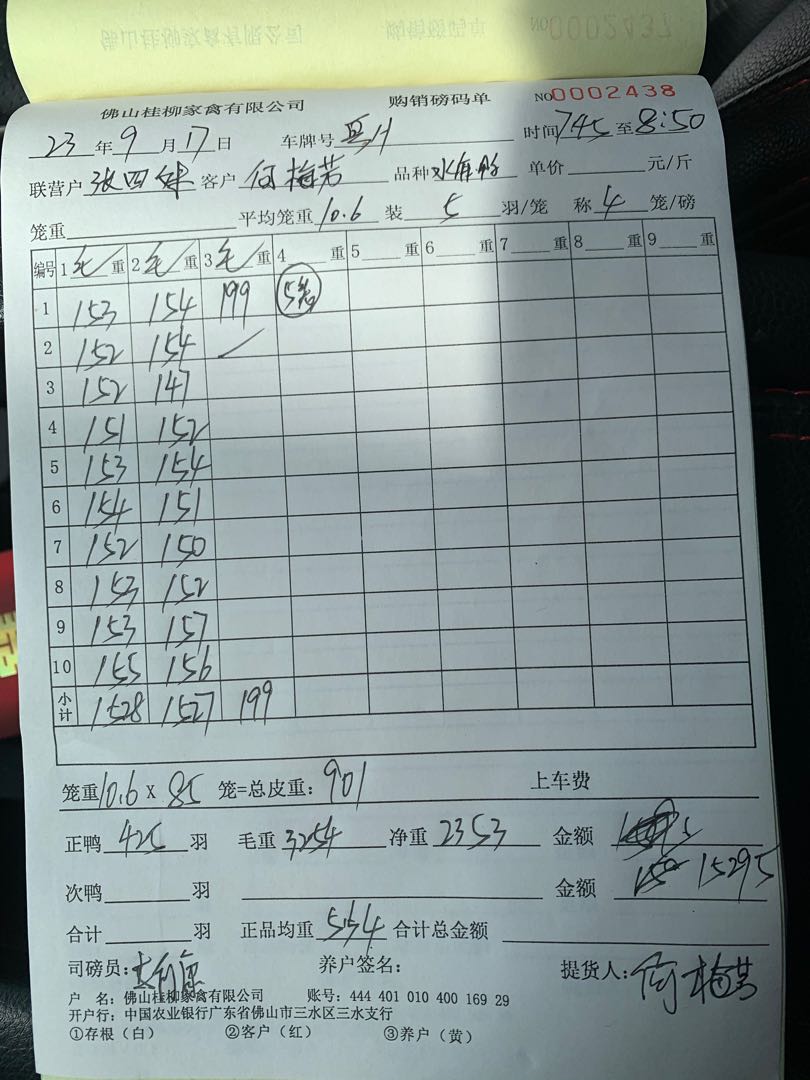 NO0002437
佛山桂柳家禽有限公司 购销磅码单 NO0002438
23年9月17日 车牌号 时间745至8:50
联营户 张四妹 客户 何梅芳 品种 单价 元/斤
笼重 平均笼重10.6 装 5 羽/笼 称 4 笼/磅
编号 1毛重 2毛重 3毛重 4 重 5 重 6 重 7 重 8 重 9 重
1 153 154 199
2 152 154
3 152 147
4 151 152
5 153 154
6 154 151
7 152 150
8 153 152
9 153 157
10 155 156
小计 1528 1527 199
笼重10.6 X 85 笼=总皮重:901 上车费
正鸭 425 羽 毛重 3254 净重 2353 金额
次鸭 羽 金额 15295
合计 羽 正品均重 554 合计总金额
司磅员: 养户签名: 提货人:何梅芳
户 名:佛山桂柳家禽有限公司 账号:444 401 010 400 169 29
开户行:中国农业银行广东省佛山市三水区三水支行
①存根(白) ②客户(红) ③养户(黄)